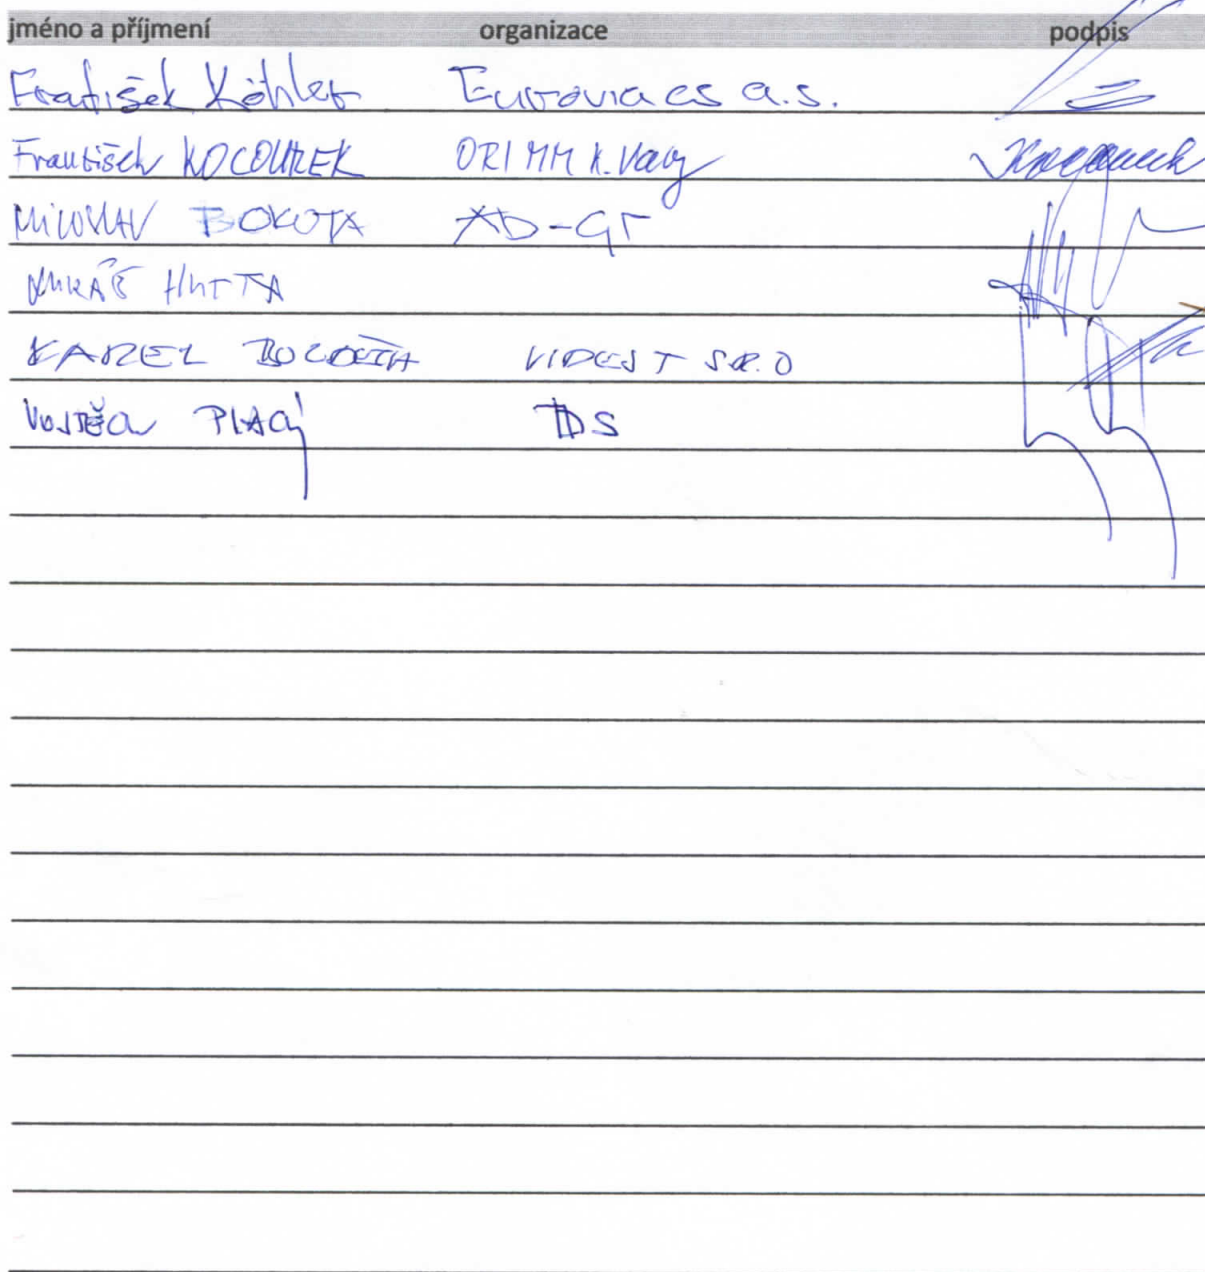 jméno a příjmení organizace podpis
František Köhler Eurovia cs a.s.
František KOCOUREK ORI MM K. Vary
MILOSLAV BOKOTA AD-GT
LUKÁŠ HUTTA
KAREL VIDEST S.R.O
VOJTĚCH PLACÝ TDS